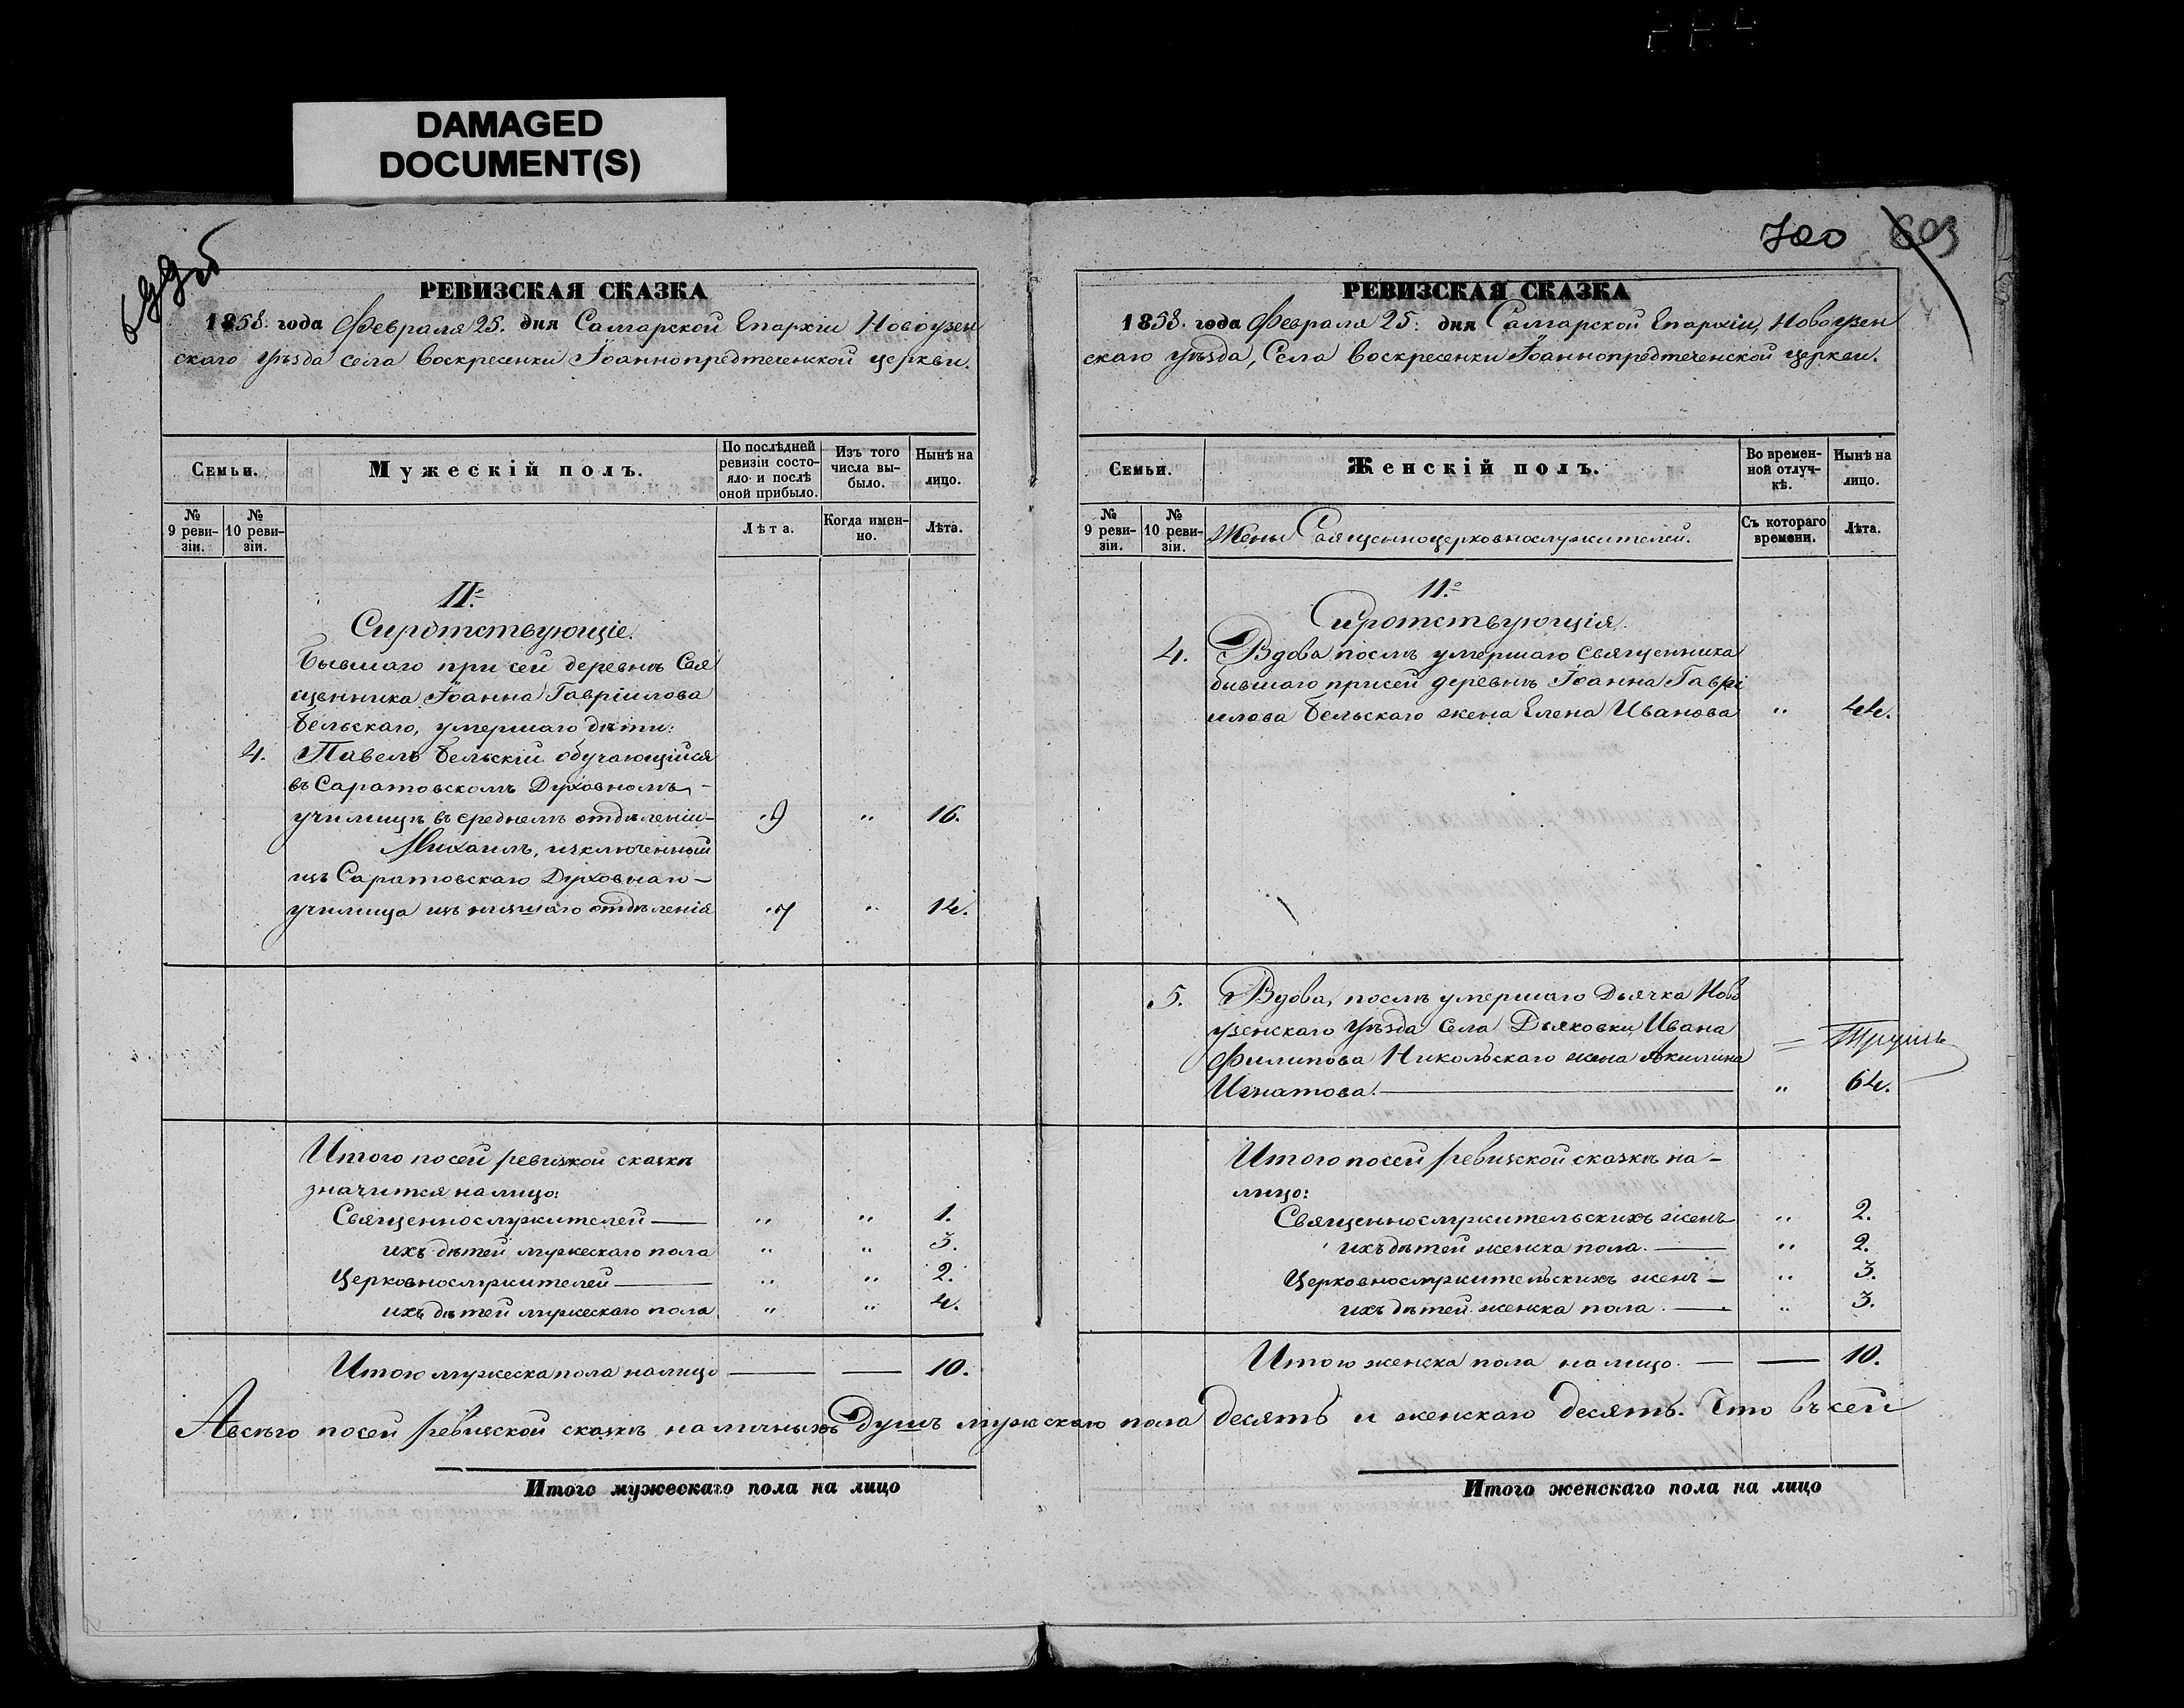 DAMAGED
DOCUMENT(S)
700 603
РЕВИЗСКАЯ СКАЗКА
1858. года Февраля 25. дня Самарской Епархіи Новоузен
скаго уѣзда села Воскресенки Іоаннопредтеченской церкви.
Семьи.
Мужескій полъ.
По послѣдней ревизіи состо-
яло и послѣ оной прибыло.
Изъ того числа вы-
было.
Нынѣ на лицо.
№ 9 реви-
зіи.
№ 10 реви-
зіи.
Лѣта.
Когда имен-
но.
Лѣта.
II.
Сиротствующіе.
Бывшаго при сей деревнѣ Свя
щенника Іоанна Гавріилова
Бельскаго, умершаго дѣти:
4. Павелъ Бельскій обучающійся
въ Саратовскомъ Духовномъ -
училищѣ въ среднемъ отдѣленіи - 9 " 16.
Михаилъ, изключенный
изъ Саратовскаго Духовнаго -
училища изъ низшаго отдѣленія 7 " 14.
Итого посей ревизской сказкѣ
значится налицо:
Священнослужителей — " " 1.
ихъ дѣтей мужескаго пола " " 3.
Церковнослужителей — " " 2.
ихъ дѣтей мужескаго пола " " 4.
Итого мужеска пола налицо — — 10.
РЕВИЗСКАЯ СКАЗКА
1858. года Февраля 25: дня Самарской Епархіи, Новоузен
скаго уѣзда, Села Воскресенки Іоаннопредтеченской церкви.
Семьи.
Женскій полъ.
Во времен-
ной отлуч-
кѣ.
Нынѣ на лицо.
№ 9 реви-
зіи.
№ 10 реви-
зіи.
Жены Священноцерковнослужителей.
Съ котораго времени.
Лѣта.
II.
Сиротствующія.
4. Вдова послѣ умершаго Священника
бывшаго присей деревнѣ Іоанна Гаврі
илова Бельскаго жена Елена Иванова " 44.
5. Вдова, послѣ умершаго Дьячка Ново
узенскаго уѣзда Села Дьяковки, Ивана
Филипова Никольскаго жена Акилина
Игнатова. — " 64.
Итого посей ревизской сказкѣ на -
лицо:
Священнослужительскихъ женъ " 2.
ихъ дѣтей женска пола. — " 2.
Церковнослужительскихъ женъ — " 3.
ихъ дѣтей женска пола — " 3.
Итого женска пола налицо. — — 10.
Авсѣго посей ревизской сказкѣ наличныхъ Душъ мужскаго пола десять и женскаго десять. Что въ сей
Итого мужескаго пола на лицо
Итого женскаго пола на лицо